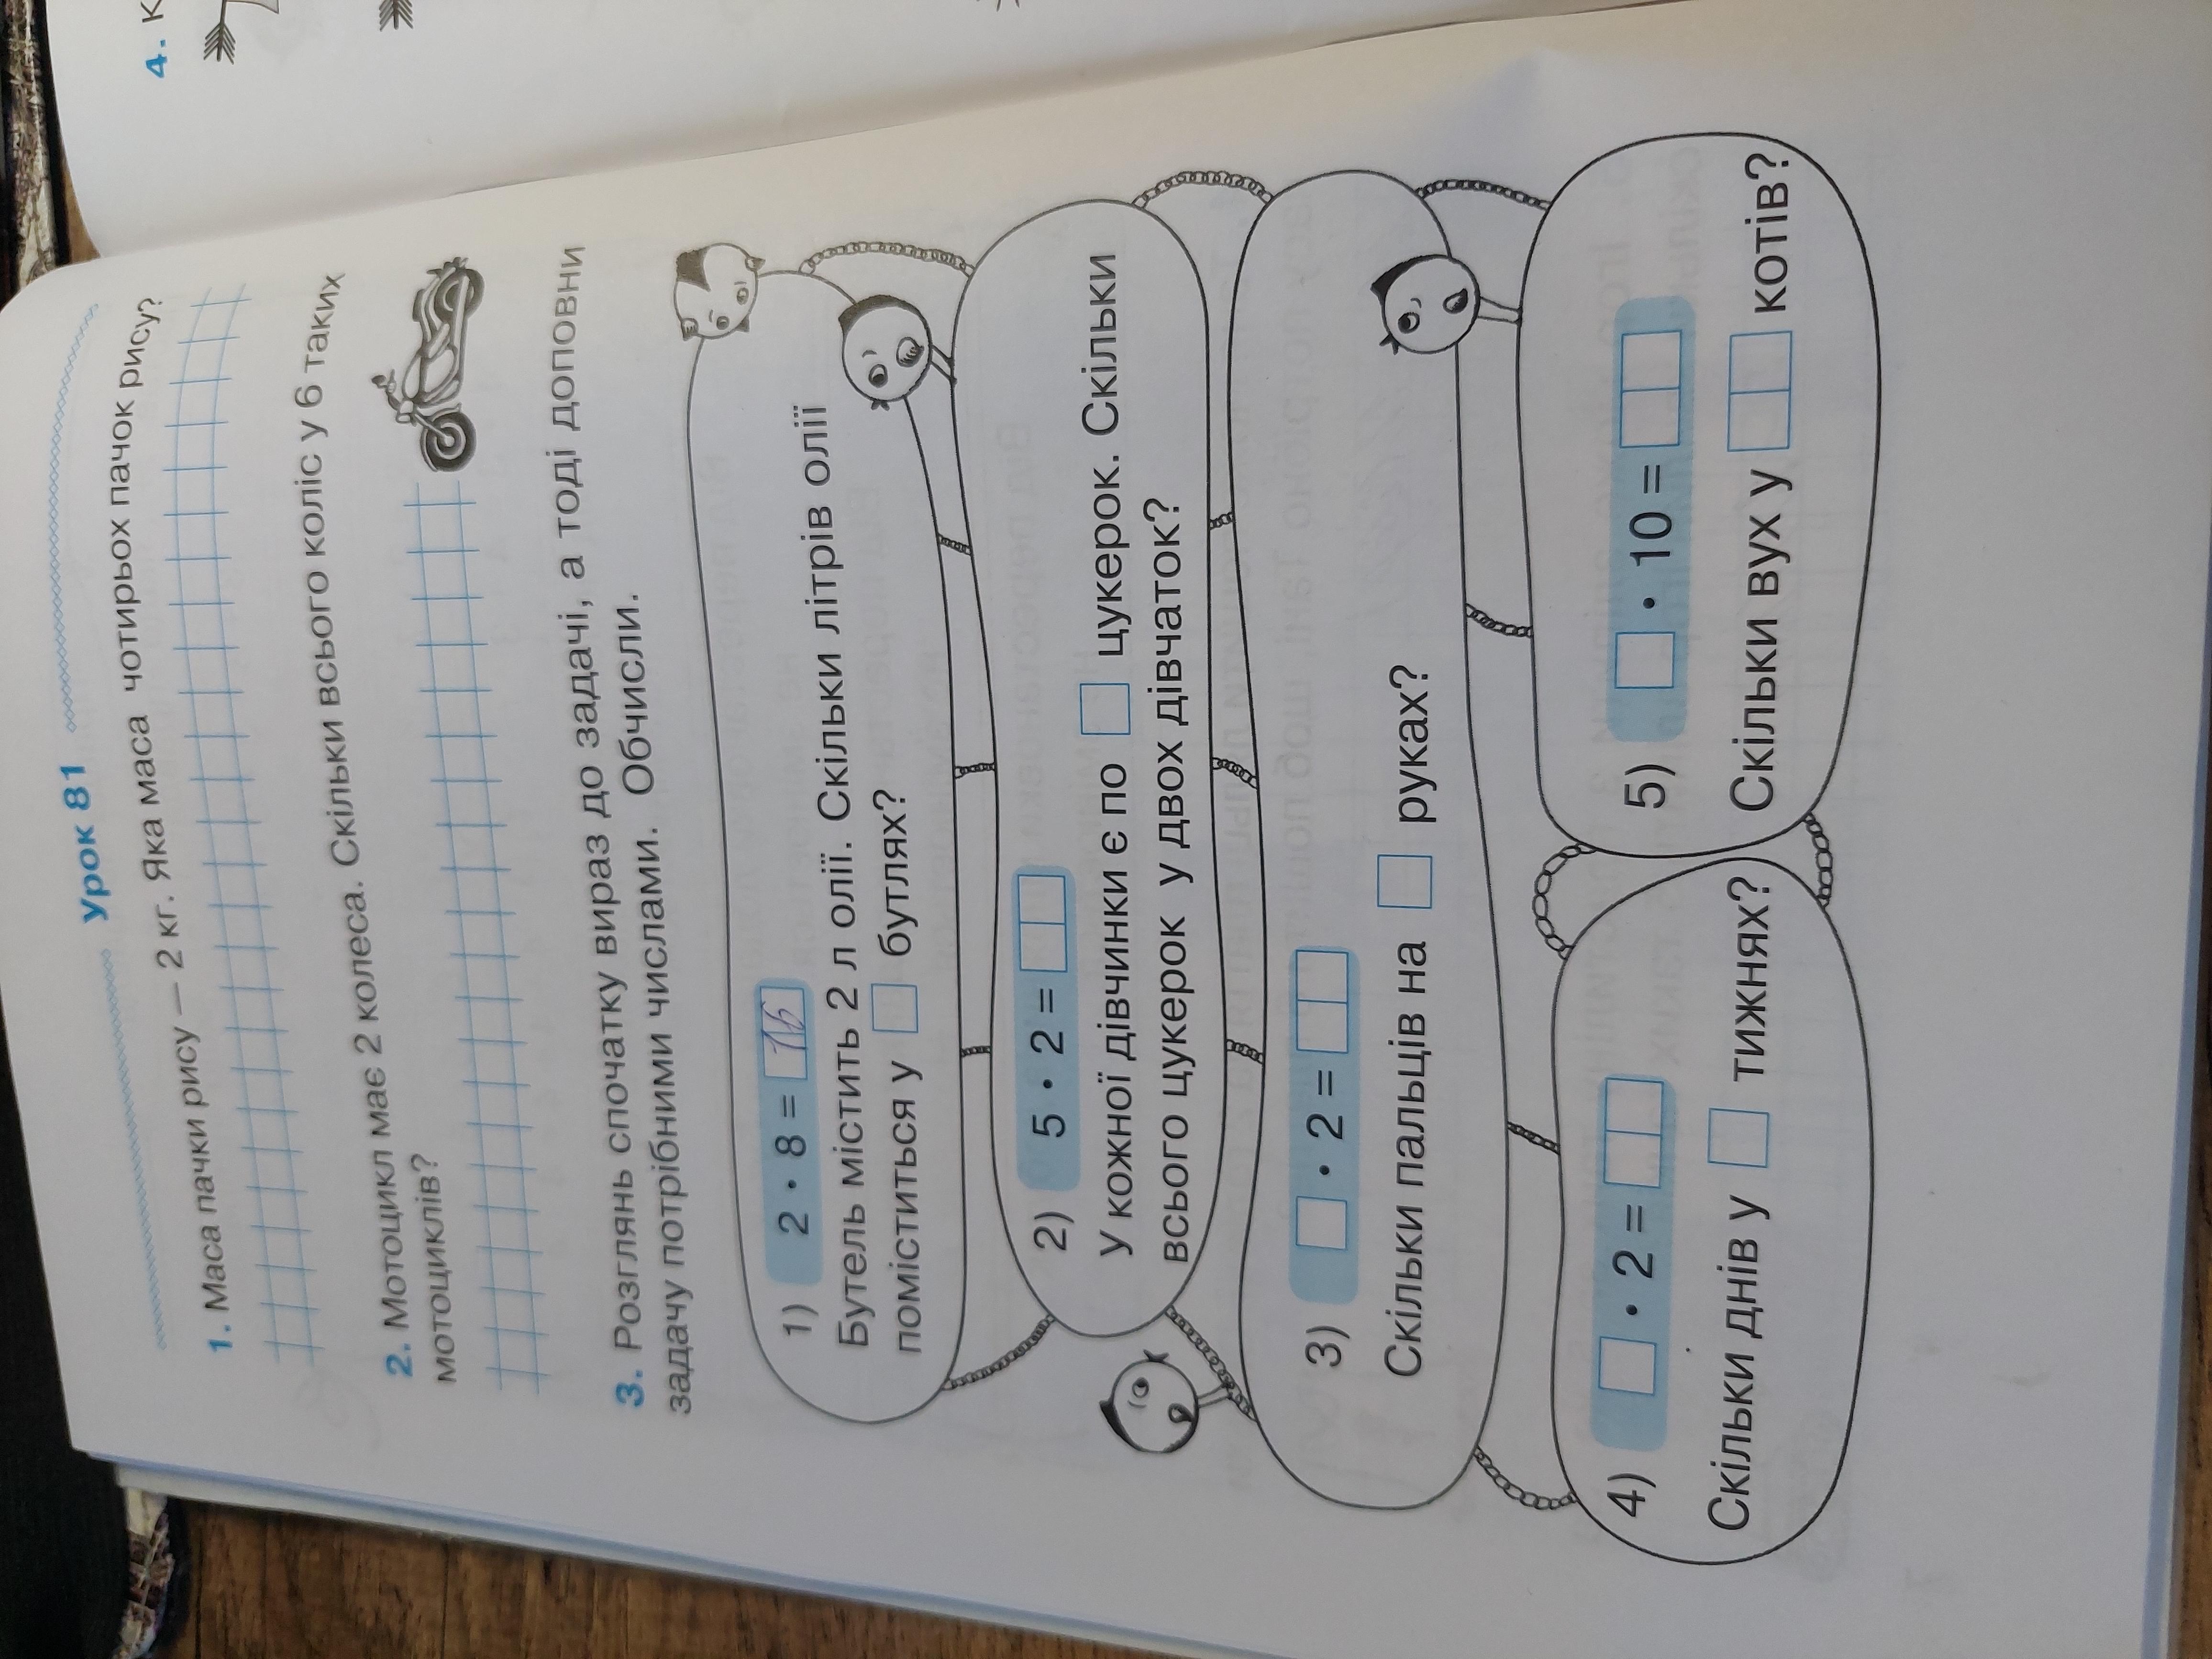 Урок 81
1. Маса пачки рису — 2 кг. Яка маса чотирьох пачок рису?
2. Мотоцикл має 2 колеса. Скільки всього коліс у 6 таких
мотоциклів?
3. Розглянь спочатку вираз до задачі, а тоді доповни
задачу потрібними числами. Обчисли.
1) 2 · 8 = 16
Бутель містить 2 л олії. Скільки літрів олії
поміститься у □ бутлях?
2) 5 · 2 = □□
У кожної дівчинки є по □ цукерок. Скільки
всього цукерок у двох дівчаток?
3) □ · 2 = □□
Скільки пальців на □ руках?
4) □ · 2 = □□
Скільки днів у □ тижнях?
5) □ · 10 = □□
Скільки вух у □□ котів?
4. К